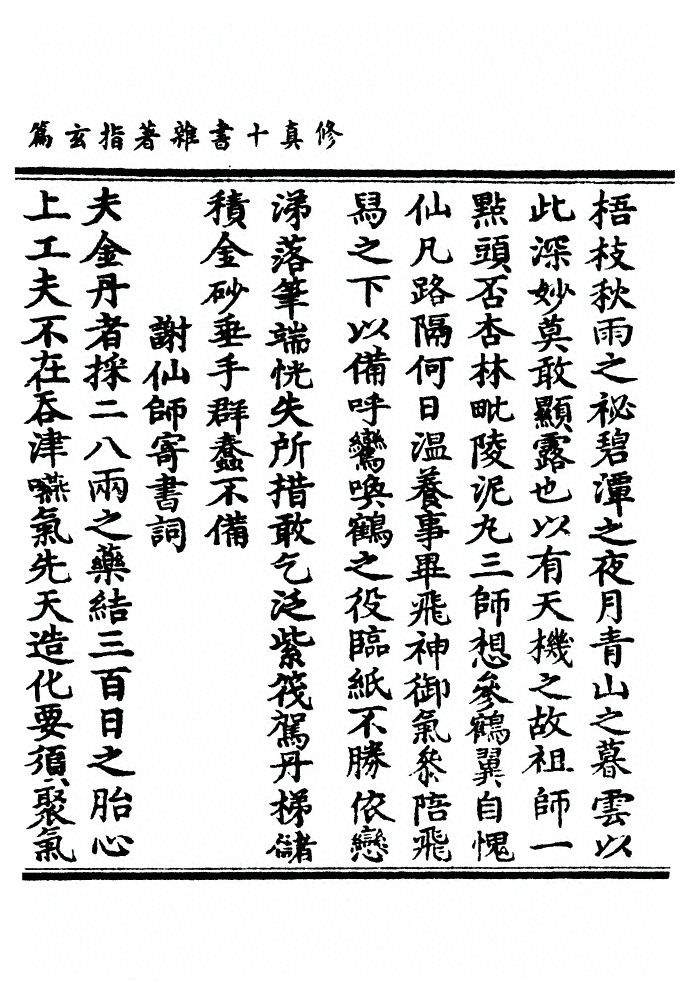 修真十書雜著指玄篇
梧枝秋雨之祕碧潭之夜月青山之暮雲以
此深妙莫敢顯露也以有天機之故祖師一
點頭否杏林毗陵泥丸三師想參鶴翼自愧
仙凡路隔何日溫養事畢飛神御氣參陪飛
舄之下以備呼鸞喚鶴之役臨紙不勝依戀
涕落筆端恍失所措敢乞泛紫筏駕丹梯儲
積金砂垂手群蠢不備
謝仙師寄書詞
夫金丹者採二八兩之藥結三百日之胎心
上工夫不在吞津嚥氣先天造化要須聚氣